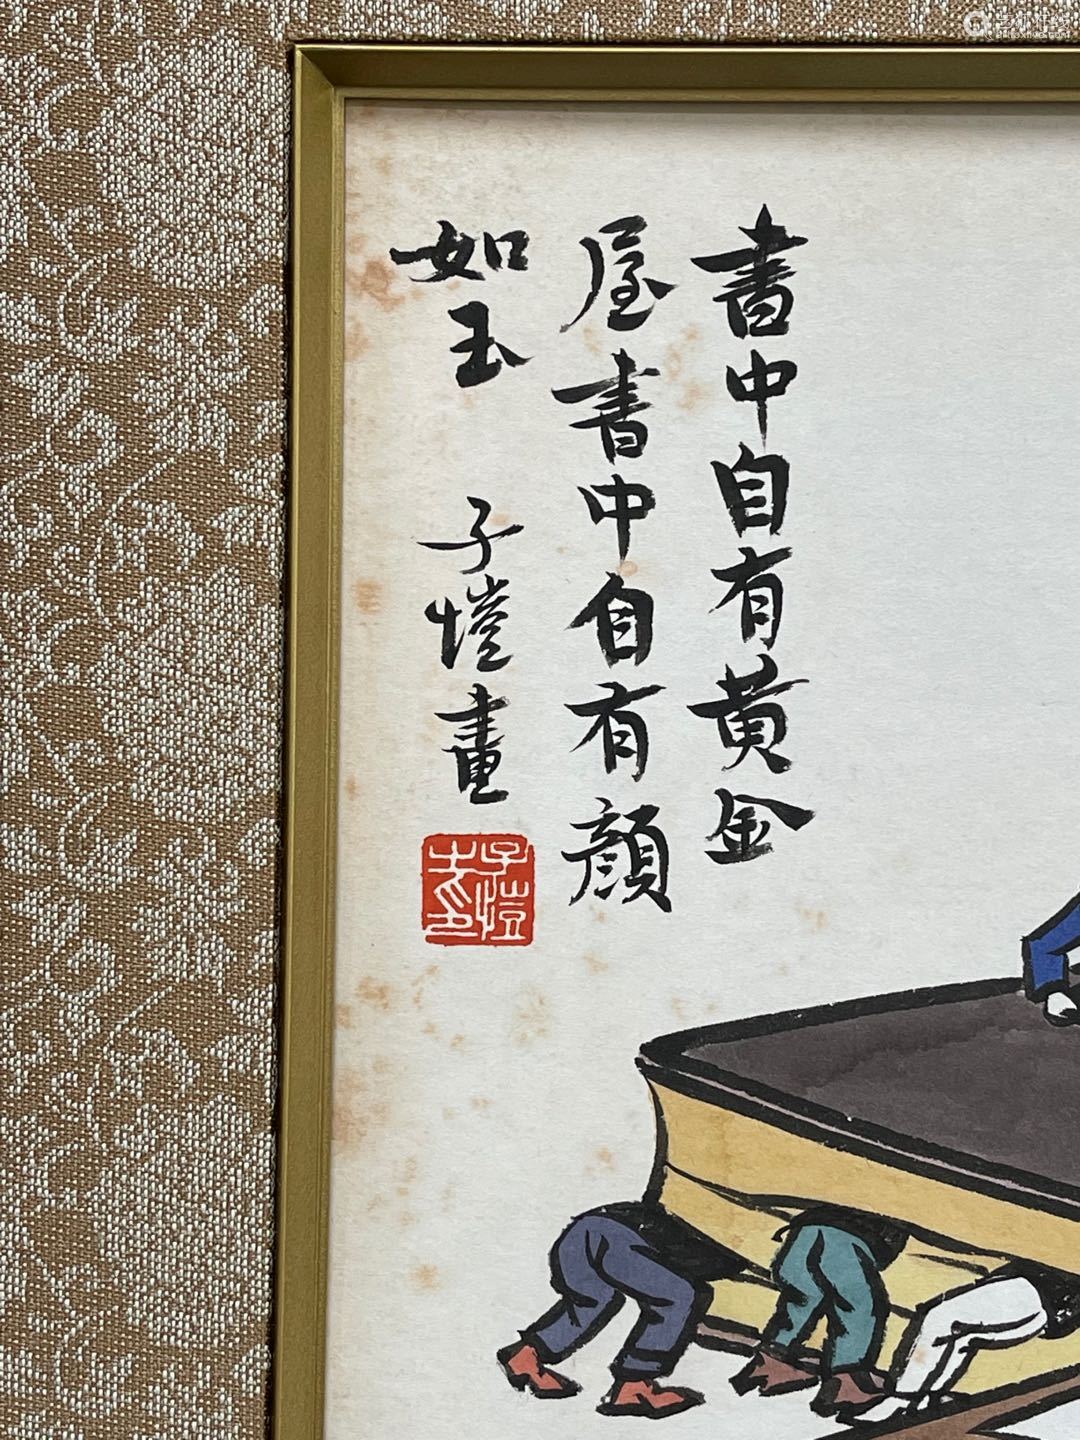 書中自有黄金
屋書中自有顔
如玉 子愷畫